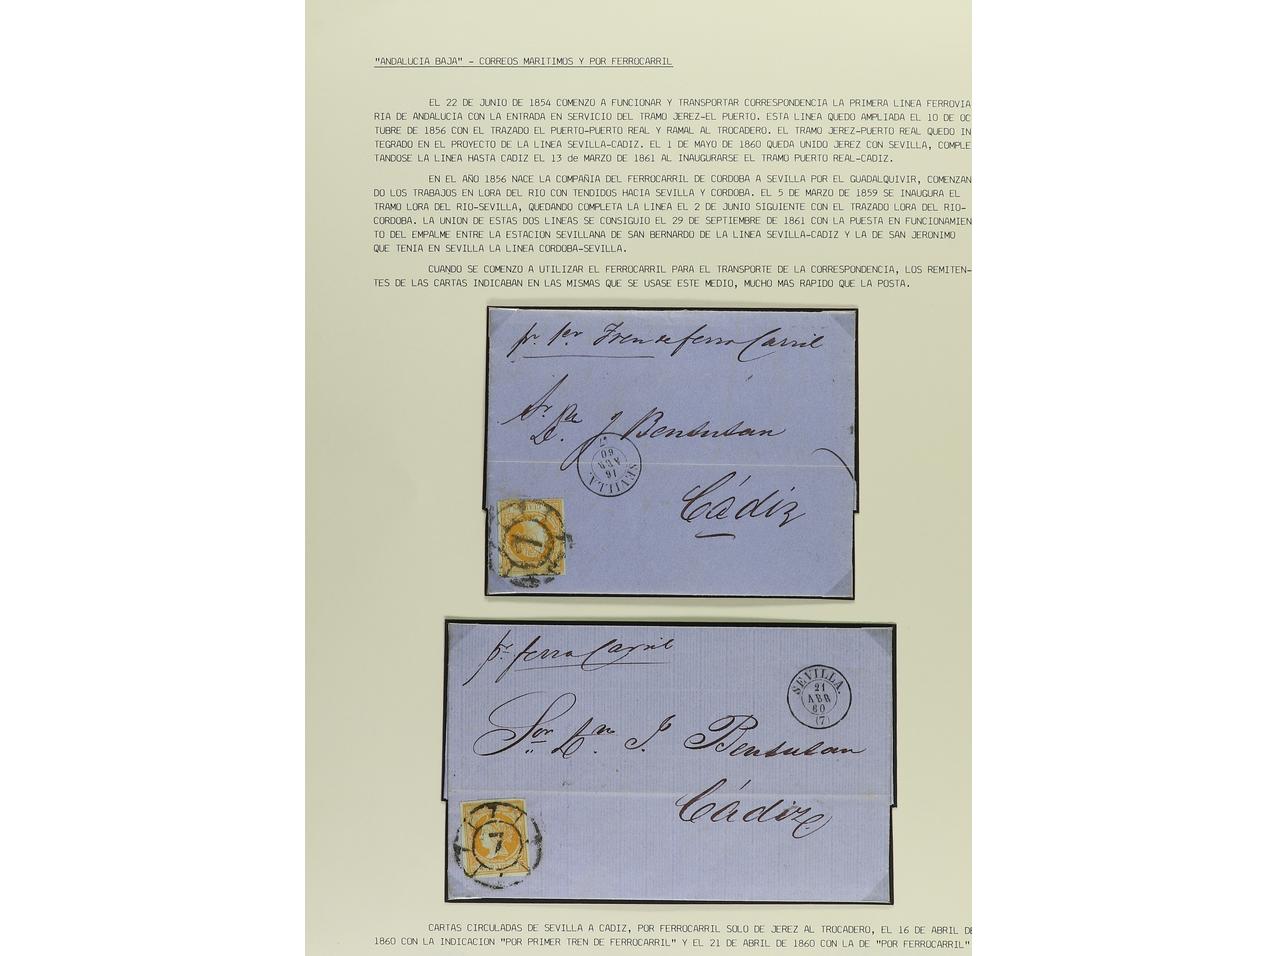 "ANDALUCIA BAJA" - CORREOS MARITIMOS Y POR FERROCARRIL
EL 22 DE JUNIO DE 1854 COMENZO A FUNCIONAR Y TRANSPORTAR CORRESPONDENCIA LA PRIMERA LINEA FERROVIA
RIA DE ANDALUCIA CON LA ENTRADA EN SERVICIO DEL TRAMO JEREZ-EL PUERTO. ESTA LINEA QUEDO AMPLIADA EL 10 DE OC
TUBRE DE 1856 CON EL TRAZADO EL PUERTO-PUERTO REAL Y RAMAL AL TROCADERO. EL TRAMO JEREZ-PUERTO REAL QUEDO IN
TEGRADO EN EL PROYECTO DE LA LINEA SEVILLA-CADIZ. EL 1 DE MAYO DE 1860 QUEDA UNIDO JEREZ CON SEVILLA, COMPLE
TANDOSE LA LINEA HASTA CADIZ EL 13 de MARZO DE 1861 AL INAUGURARSE EL TRAMO PUERTO REAL-CADIZ.
EN EL AÑO 1856 NACE LA COMPAÑIA DEL FERROCARRIL DE CORDOBA A SEVILLA POR EL GUADALQUIVIR, COMENZAN
DO LOS TRABAJOS EN LORA DEL RIO CON TENDIDOS HACIA SEVILLA Y CORDOBA. EL 5 DE MARZO DE 1859 SE INAUGURA EL
TRAMO LORA DEL RIO-SEVILLA, QUEDANDO COMPLETA LA LINEA EL 2 DE JUNIO SIGUIENTE CON EL TRAZADO LORA DEL RIO-
CORDOBA. LA UNION DE ESTAS DOS LINEAS SE CONSIGUIO EL 29 DE SEPTIEMBRE DE 1861 CON LA PUESTA EN FUNCIONAMIEN
TO DEL EMPALME ENTRE LA ESTACION SEVILLANA DE SAN BERNARDO DE LA LINEA SEVILLA-CADIZ Y LA DE SAN JERONIMO
QUE TENIA EN SEVILLA LA LINEA CORDOBA-SEVILLA.
CUANDO SE COMENZO A UTILIZAR EL FERROCARRIL PARA EL TRANSPORTE DE LA CORRESPONDENCIA, LOS REMITEN-
TES DE LAS CARTAS INDICABAN EN LAS MISMAS QUE SE USASE ESTE MEDIO, MUCHO MAS RAPIDO QUE LA POSTA.
pr. 1er Tren de ferro Carril
Sr. Dn. J Bensusan
SEVILLA.
16
ABR
60
Cádiz
7
pr. ferro Carril
SEVILLA.
21
ABR
60
(7)
Sor. Dn. J. Bensusan
Cádiz
7
CARTAS CIRCULADAS DE SEVILLA A CADIZ, POR FERROCARRIL SOLO DE JEREZ AL TROCADERO, EL 16 DE ABRIL DE
1860 CON LA INDICACION "POR PRIMER TREN DE FERROCARRIL" Y EL 21 DE ABRIL DE 1860 CON LA DE "POR FERROCARRIL"